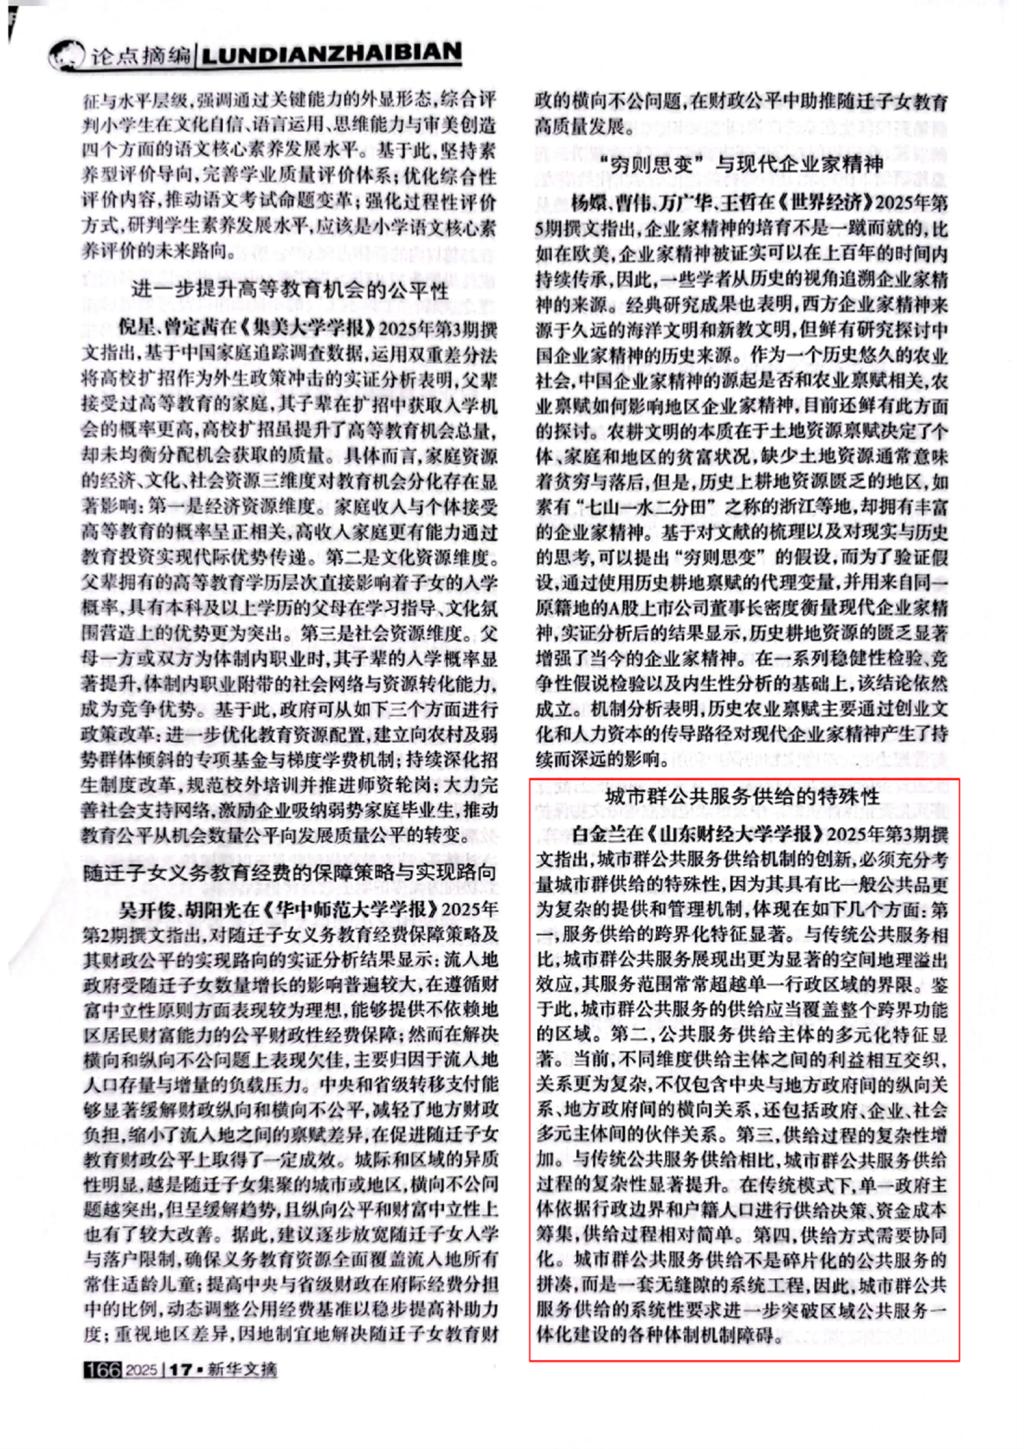 论点摘编 LUNDIANZHAIBIAN
征与水平层级，强调通过关键能力的外显形态，综合评
判小学生在文化自信、语言运用、思维能力与审美创造
四个方面的语文核心素养发展水平。基于此，坚持素
养型评价导向，完善学业质量评价体系；优化综合性
评价内容，推动语文考试命题变革；强化过程性评价
方式，研判学生素养发展水平，应该是小学语文核心素
养评价的未来路向。
进一步提升高等教育机会的公平性
倪星、曾定茜在《集美大学学报》2025年第3期撰
文指出，基于中国家庭追踪调查数据，运用双重差分法
将高校扩招作为外生政策冲击的实证分析表明，父辈
接受过高等教育的家庭，其子辈在扩招中获取入学机
会的概率更高，高校扩招虽提升了高等教育机会总量，
却未均衡分配机会获取的质量。具体而言，家庭资源
的经济、文化、社会资源三维度对教育机会分化存在显
著影响：第一是经济资源维度。家庭收入与个体接受
高等教育的概率呈正相关，高收入家庭更有能力通过
教育投资实现代际优势传递。第二是文化资源维度。
父辈拥有的高等教育学历层次直接影响着子女的入学
概率，具有本科及以上学历的父母在学习指导、文化氛
围营造上的优势更为突出。第三是社会资源维度。父
母一方或双方为体制内职业时，其子辈的入学概率显
著提升，体制内职业附带的社会网络与资源转化能力，
成为竞争优势。基于此，政府可从如下三个方面进行
政策改革：进一步优化教育资源配置，建立向农村及弱
势群体倾斜的专项基金与梯度学费机制；持续深化招
生制度改革，规范校外培训并推进师资轮岗；大力完
善社会支持网络，激励企业吸纳弱势家庭毕业生，推动
教育公平从机会数量公平向发展质量公平的转变。
随迁子女义务教育经费的保障策略与实现路向
吴开俊、胡阳光在《华中师范大学学报》2025年
第2期撰文指出，对随迁子女义务教育经费保障策略及
其财政公平的实现路向的实证分析结果显示：流入地
政府受随迁子女数量增长的影响普遍较大，在遵循财
富中立性原则方面表现较为理想，能够提供不依赖地
区居民财富能力的公平财政性经费保障；然而在解决
横向和纵向不公问题上表现欠佳，主要归因于流入地
人口存量与增量的负载压力。中央和省级转移支付能
够显著缓解财政纵向和横向不公平，减轻了地方财政
负担，缩小了流入地之间的禀赋差异，在促进随迁子女
教育财政公平上取得了一定成效。城际和区域的异质
性明显，越是随迁子女集聚的城市或地区，横向不公问
题越突出，但呈缓解趋势，且纵向公平和财富中立性上
也有了较大改善。据此，建议逐步放宽随迁子女入学
与落户限制，确保义务教育资源全面覆盖流入地所有
常住适龄儿童；提高中央与省级财政在府际经费分担
中的比例，动态调整公用经费基准以稳步提高补助力
度；重视地区差异，因地制宜地解决随迁子女教育财
政的横向不公问题，在财政公平中助推随迁子女教育
高质量发展。
“穷则思变”与现代企业家精神
杨嬛、曹伟、万广华、王哲在《世界经济》2025年第
5期撰文指出，企业家精神的培育不是一蹴而就的，比
如在欧美，企业家精神被证实可以在上百年的时间内
持续传承，因此，一些学者从历史的视角追溯企业家精
神的来源。经典研究成果也表明，西方企业家精神来
源于久远的海洋文明和新教文明，但鲜有研究探讨中
国企业家精神的历史来源。作为一个历史悠久的农业
社会，中国企业家精神的源起是否和农业禀赋相关，农
业禀赋如何影响地区企业家精神，目前还鲜有此方面
的探讨。农耕文明的本质在于土地资源禀赋决定了个
体、家庭和地区的贫富状况，缺少土地资源通常意味
着贫穷与落后，但是，历史上耕地资源匮乏的地区，如
素有“七山一水二分田”之称的浙江等地，却拥有丰富
的企业家精神。基于对文献的梳理以及对现实与历史
的思考，可以提出“穷则思变”的假设，而为了验证假
设，通过使用历史耕地禀赋的代理变量，并用来自同一
原籍地的A股上市公司董事长密度衡量现代企业家精
神，实证分析后的结果显示，历史耕地资源的匮乏显著
增强了当今的企业家精神。在一系列稳健性检验、竞
争性假说检验以及内生性分析的基础上，该结论依然
成立。机制分析表明，历史农业禀赋主要通过创业文
化和人力资本的传导路径对现代企业家精神产生了持
续而深远的影响。
城市群公共服务供给的特殊性
白金兰在《山东财经大学学报》2025年第3期撰
文指出，城市群公共服务供给机制的创新，必须充分考
量城市群供给的特殊性，因为其具有比一般公共品更
为复杂的提供和管理机制，体现在如下几个方面：第
一，服务供给的跨界化特征显著。与传统公共服务相
比，城市群公共服务展现出更为显著的空间地理溢出
效应，其服务范围常常超越单一行政区域的界限。鉴
于此，城市群公共服务的供给应当覆盖整个跨界功能
的区域。第二，公共服务供给主体的多元化特征显
著。当前，不同维度供给主体之间的利益相互交织，
关系更为复杂，不仅包含中央与地方政府间的纵向关
系、地方政府间的横向关系，还包括政府、企业、社会
多元主体间的伙伴关系。第三，供给过程的复杂性增
加。与传统公共服务供给相比，城市群公共服务供给
过程的复杂性显著提升。在传统模式下，单一政府主
体依据行政边界和户籍人口进行供给决策、资金成本
筹集，供给过程相对简单。第四，供给方式需要协同
化。城市群公共服务供给不是碎片化的公共服务的
拼凑，而是一套无缝隙的系统工程，因此，城市群公共
服务供给的系统性要求进一步突破区域公共服务一
体化建设的各种体制机制障碍。
166 2025 | 17 · 新华文摘